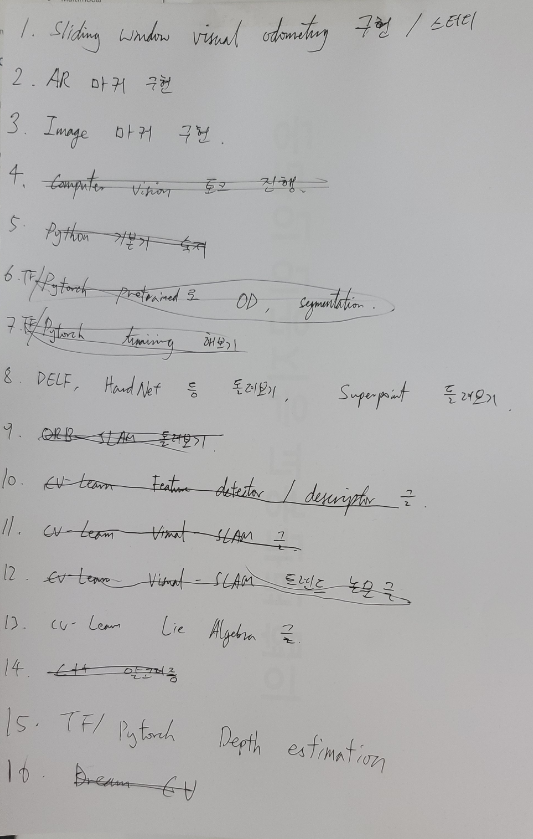 1. Sliding window visual odometry 구현 / 스터디
2. AR 마커 구현
3. Image 마커 구현.
4. Computer Vision 토크 진행.
5. Python 기본기 숙지
6. TF/Pytorch pretrained로 OD, segmentation.
7. TF/Pytorch training 해보기
8. DELF, HardNet 등 돌려보기, Superpoint 돌려보기.
9. ORB-SLAM 돌려보기
10. CV-Learn Feature detector / descriptor 글
11. CV-Learn Visual-SLAM 글
12. CV-Learn Visual-SLAM 트렌드 논문 글
13. CV-Learn Lie Algebra 글
14. C++ 알고리즘
15. TF/Pytorch Depth estimation
16. Dream CV